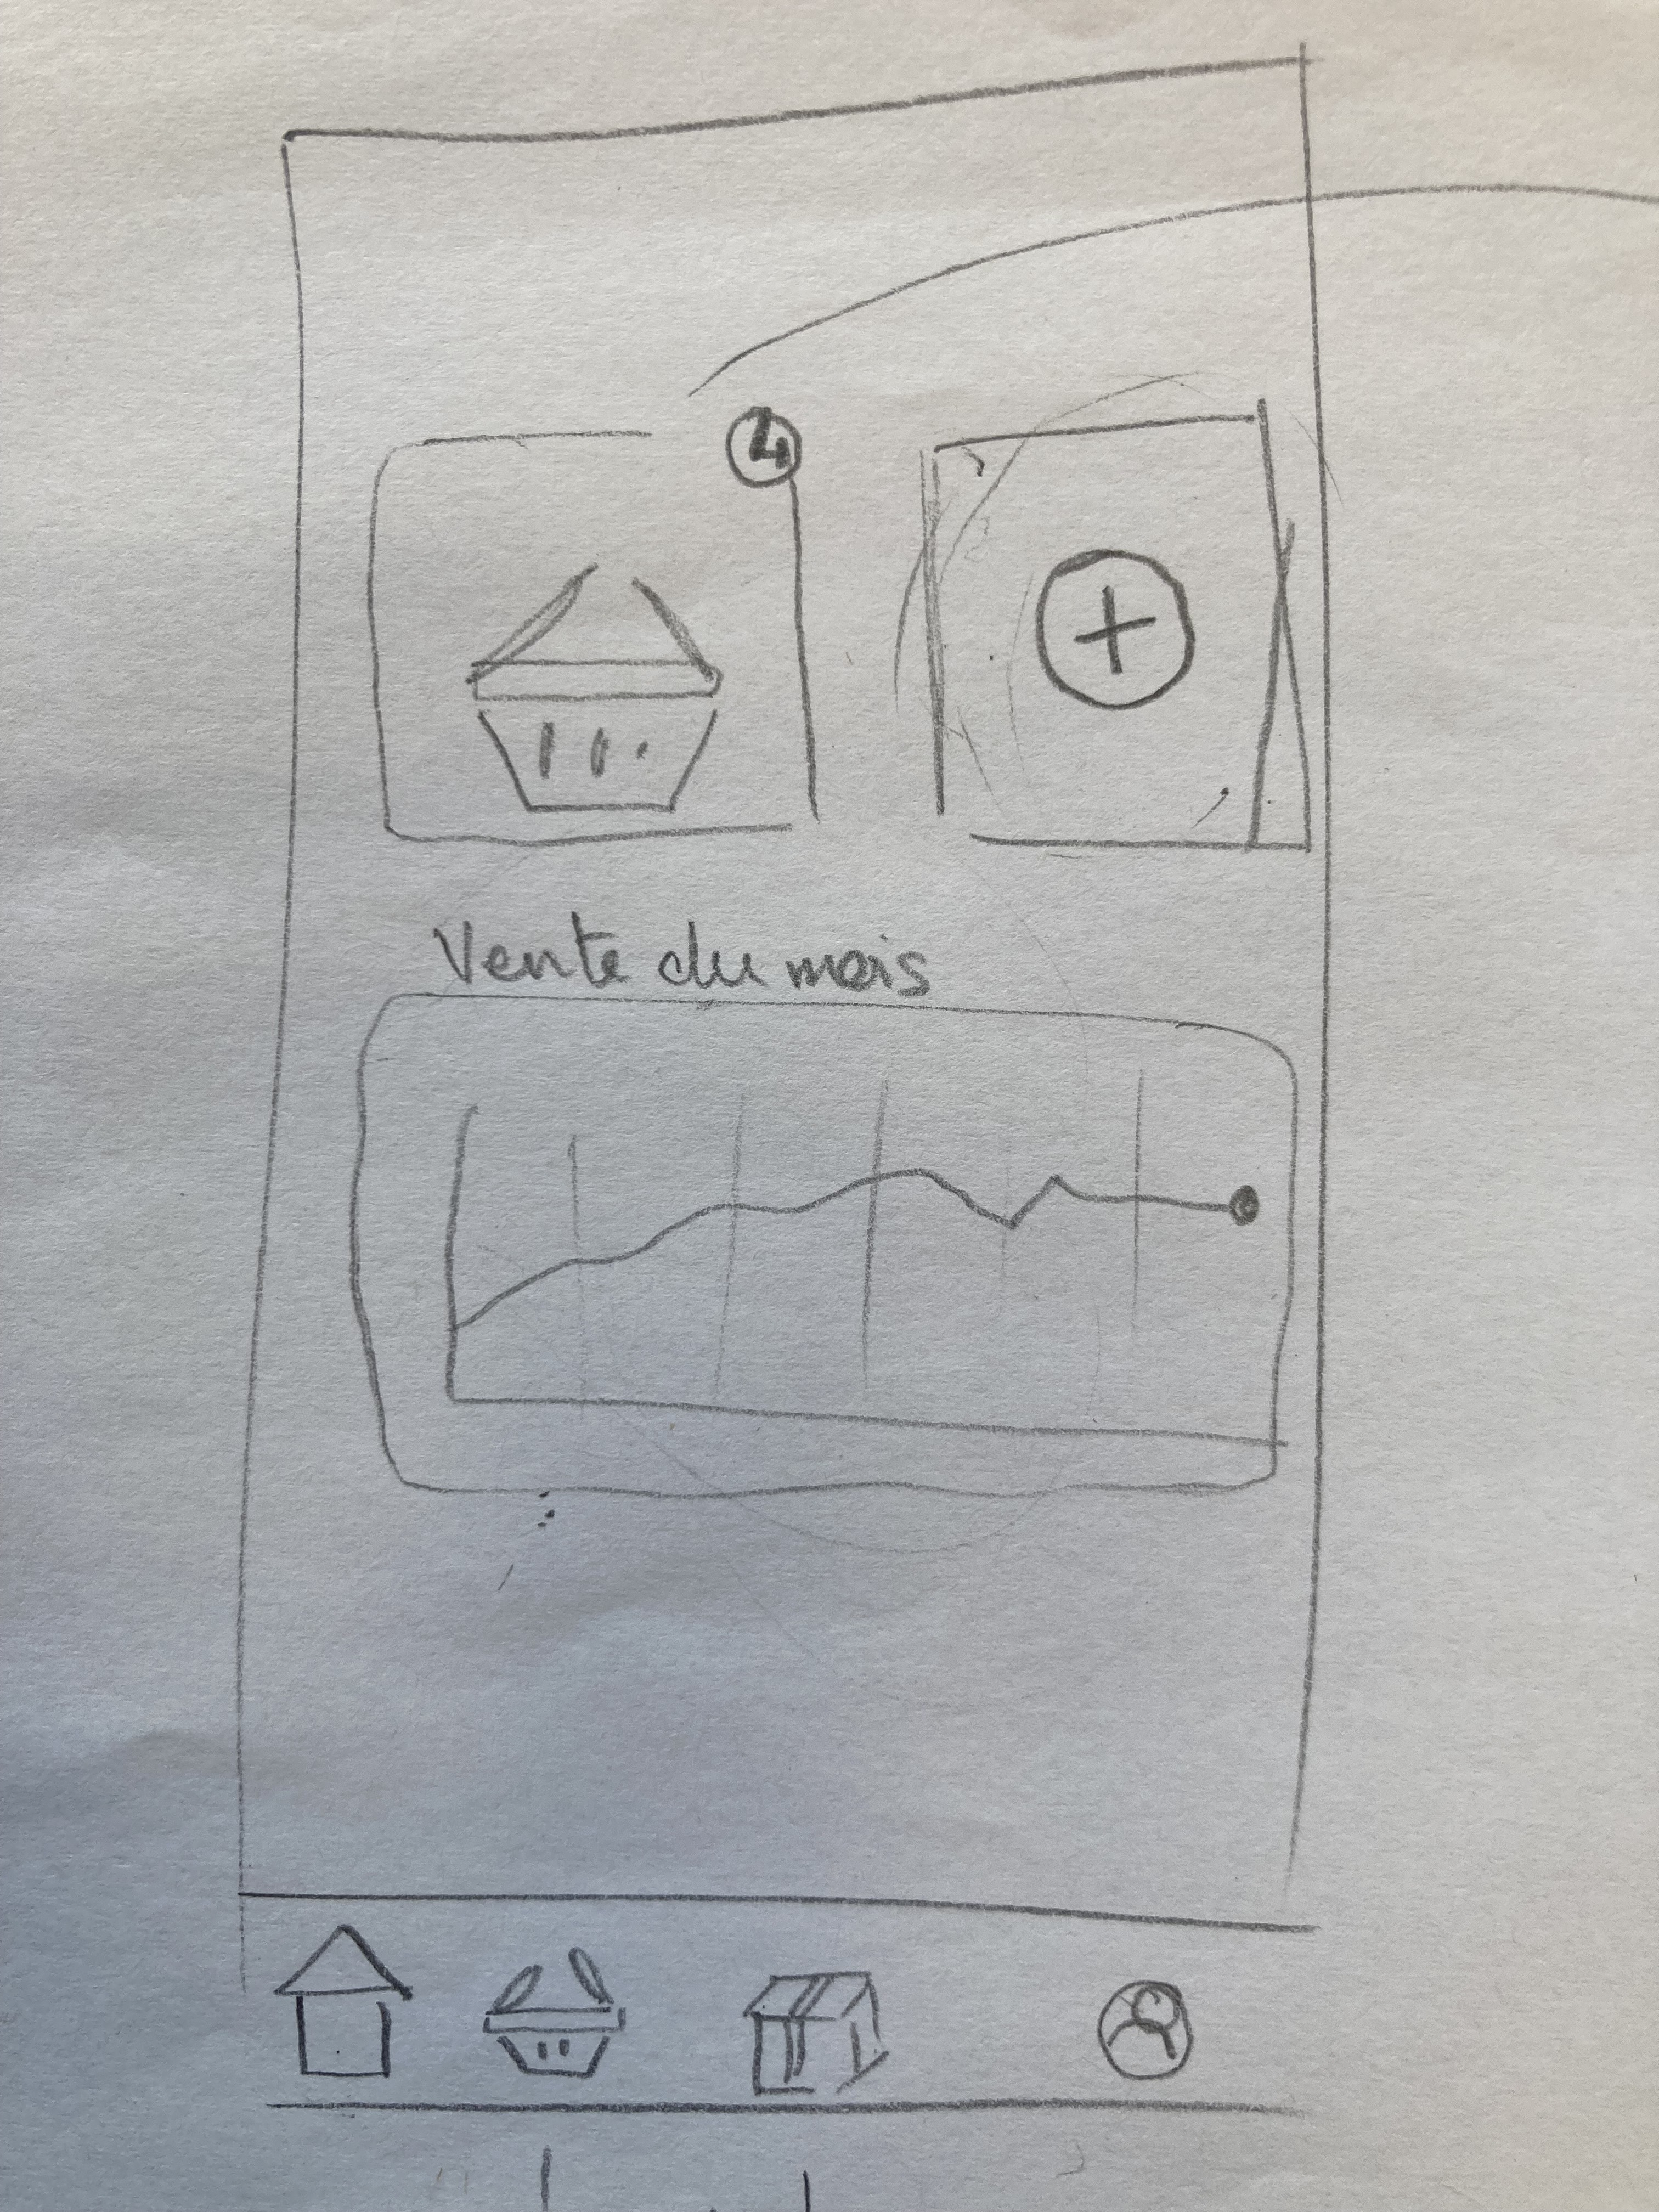 4
Vente du mois